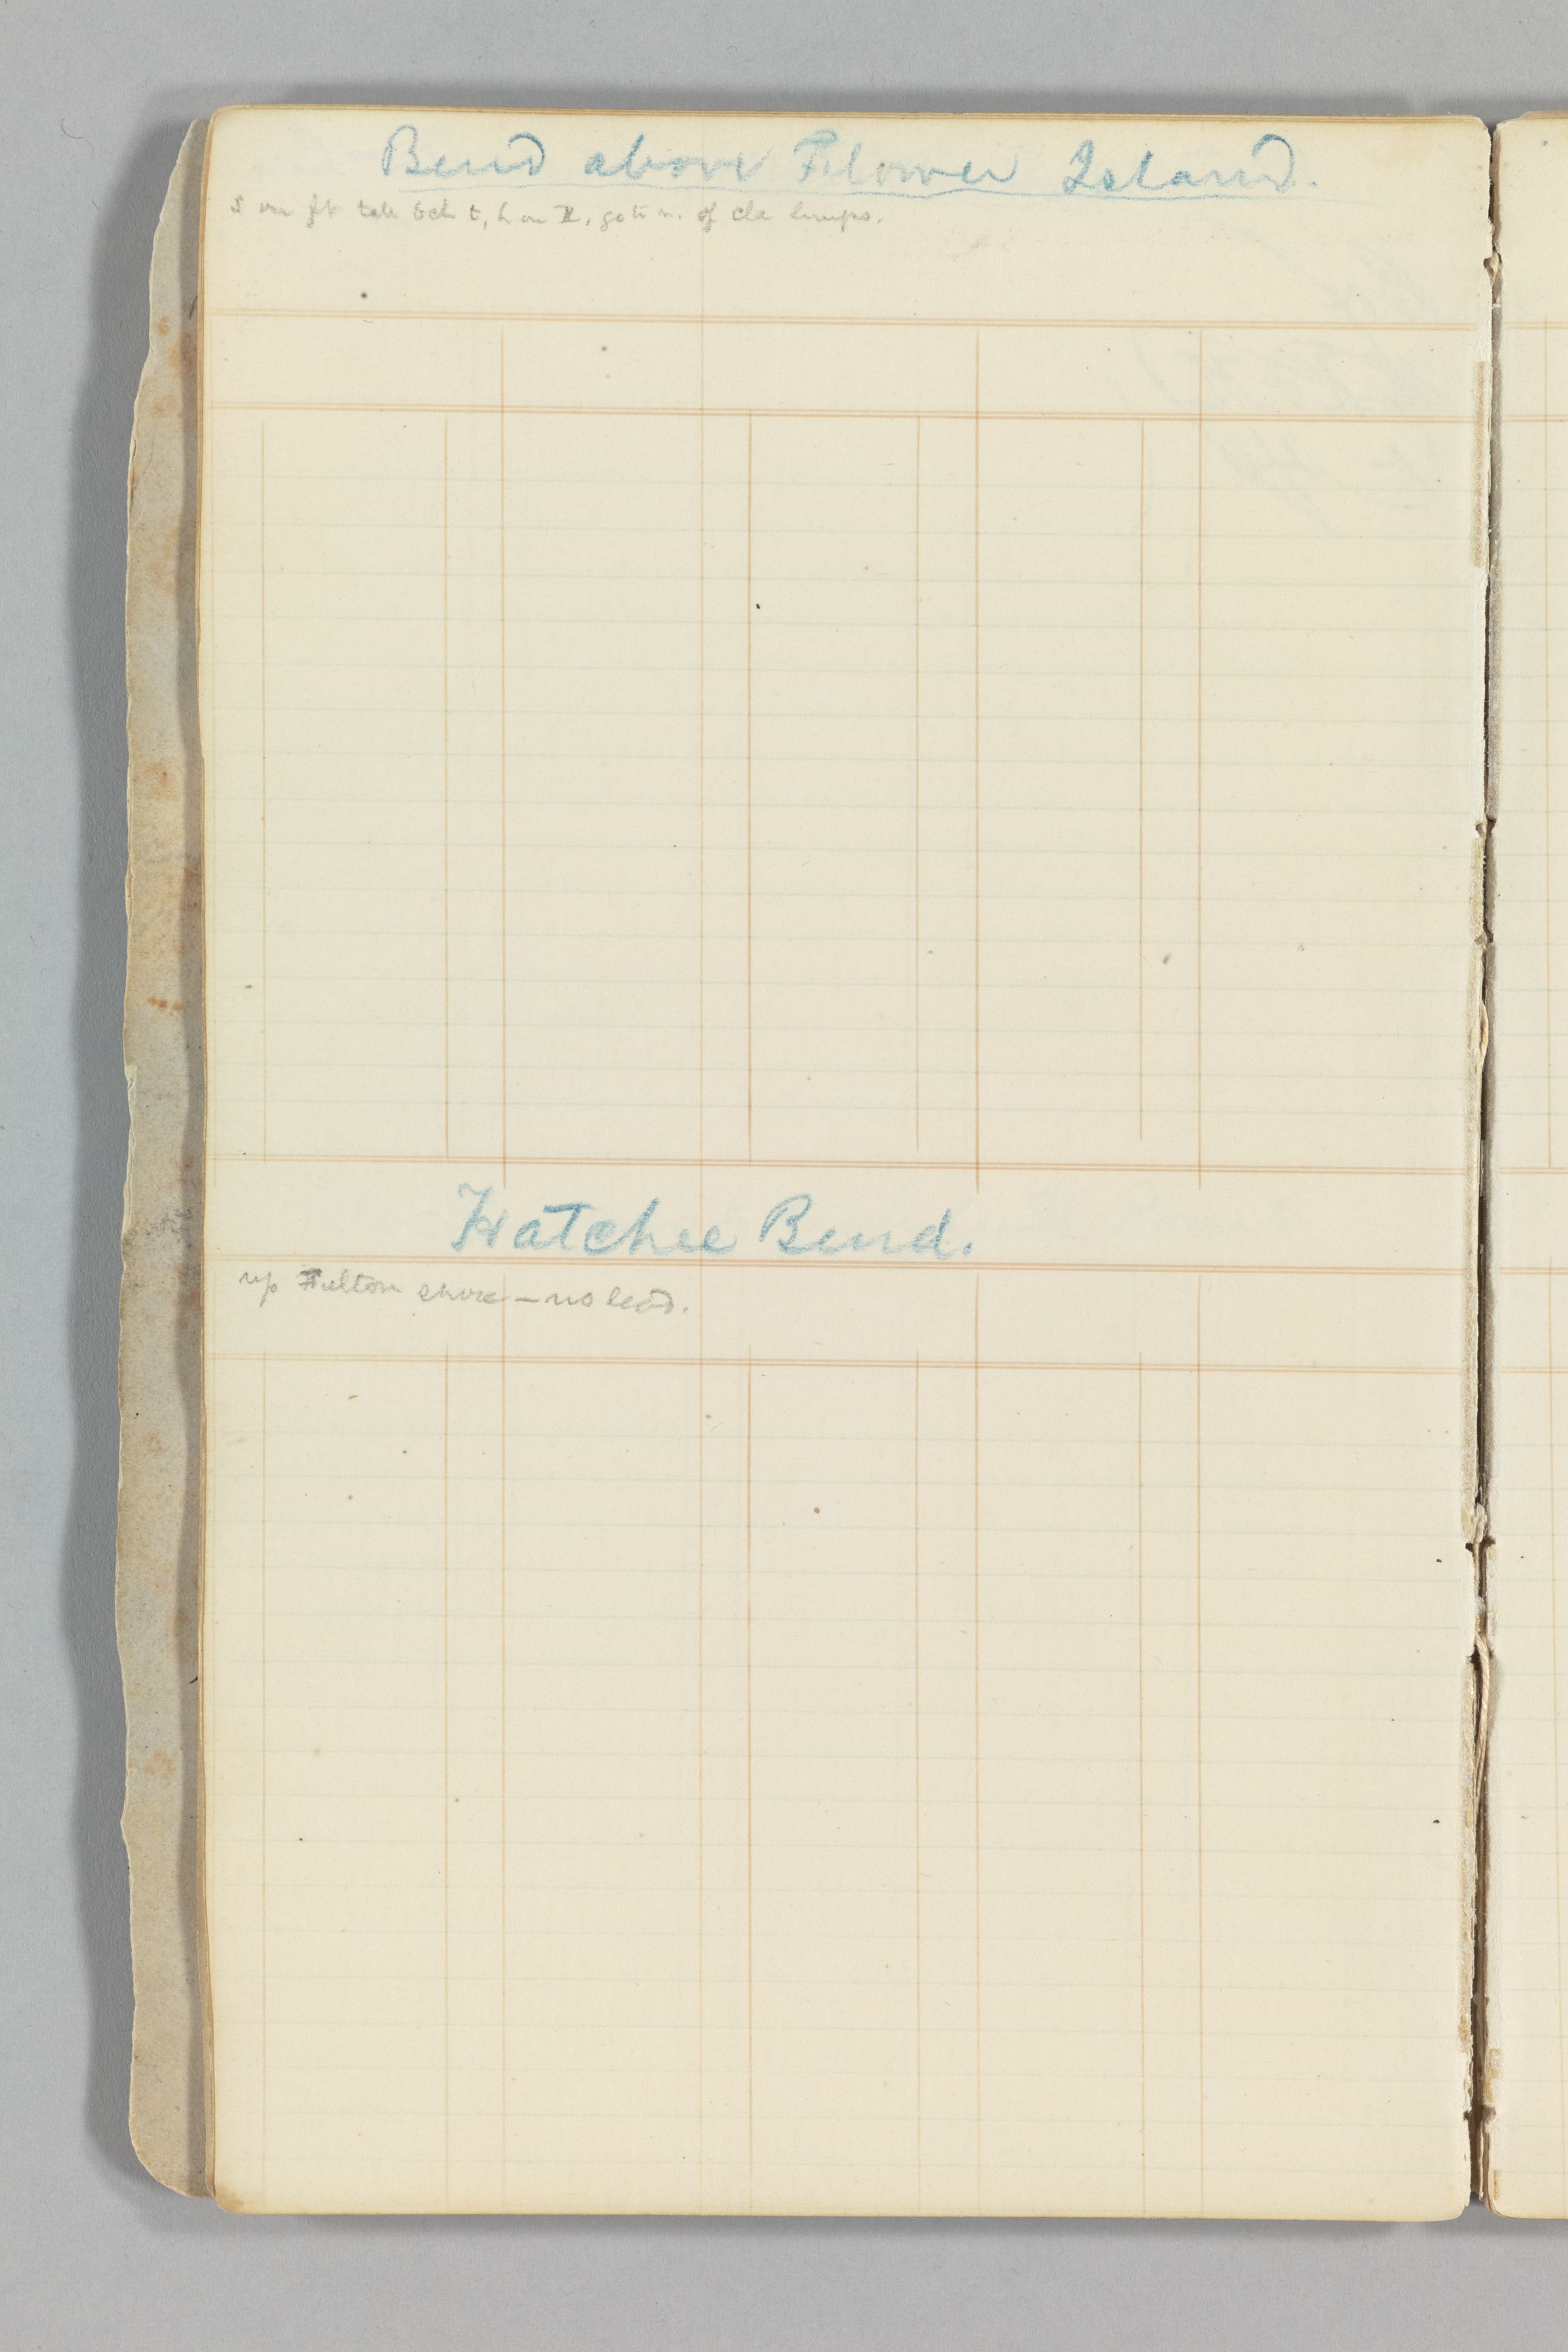 Bend above Flower Island.
S on pt tall 6ch t, h on II, go to n. of cla lumps.
Hatchee Bend.
up Fulton shore – no lead.